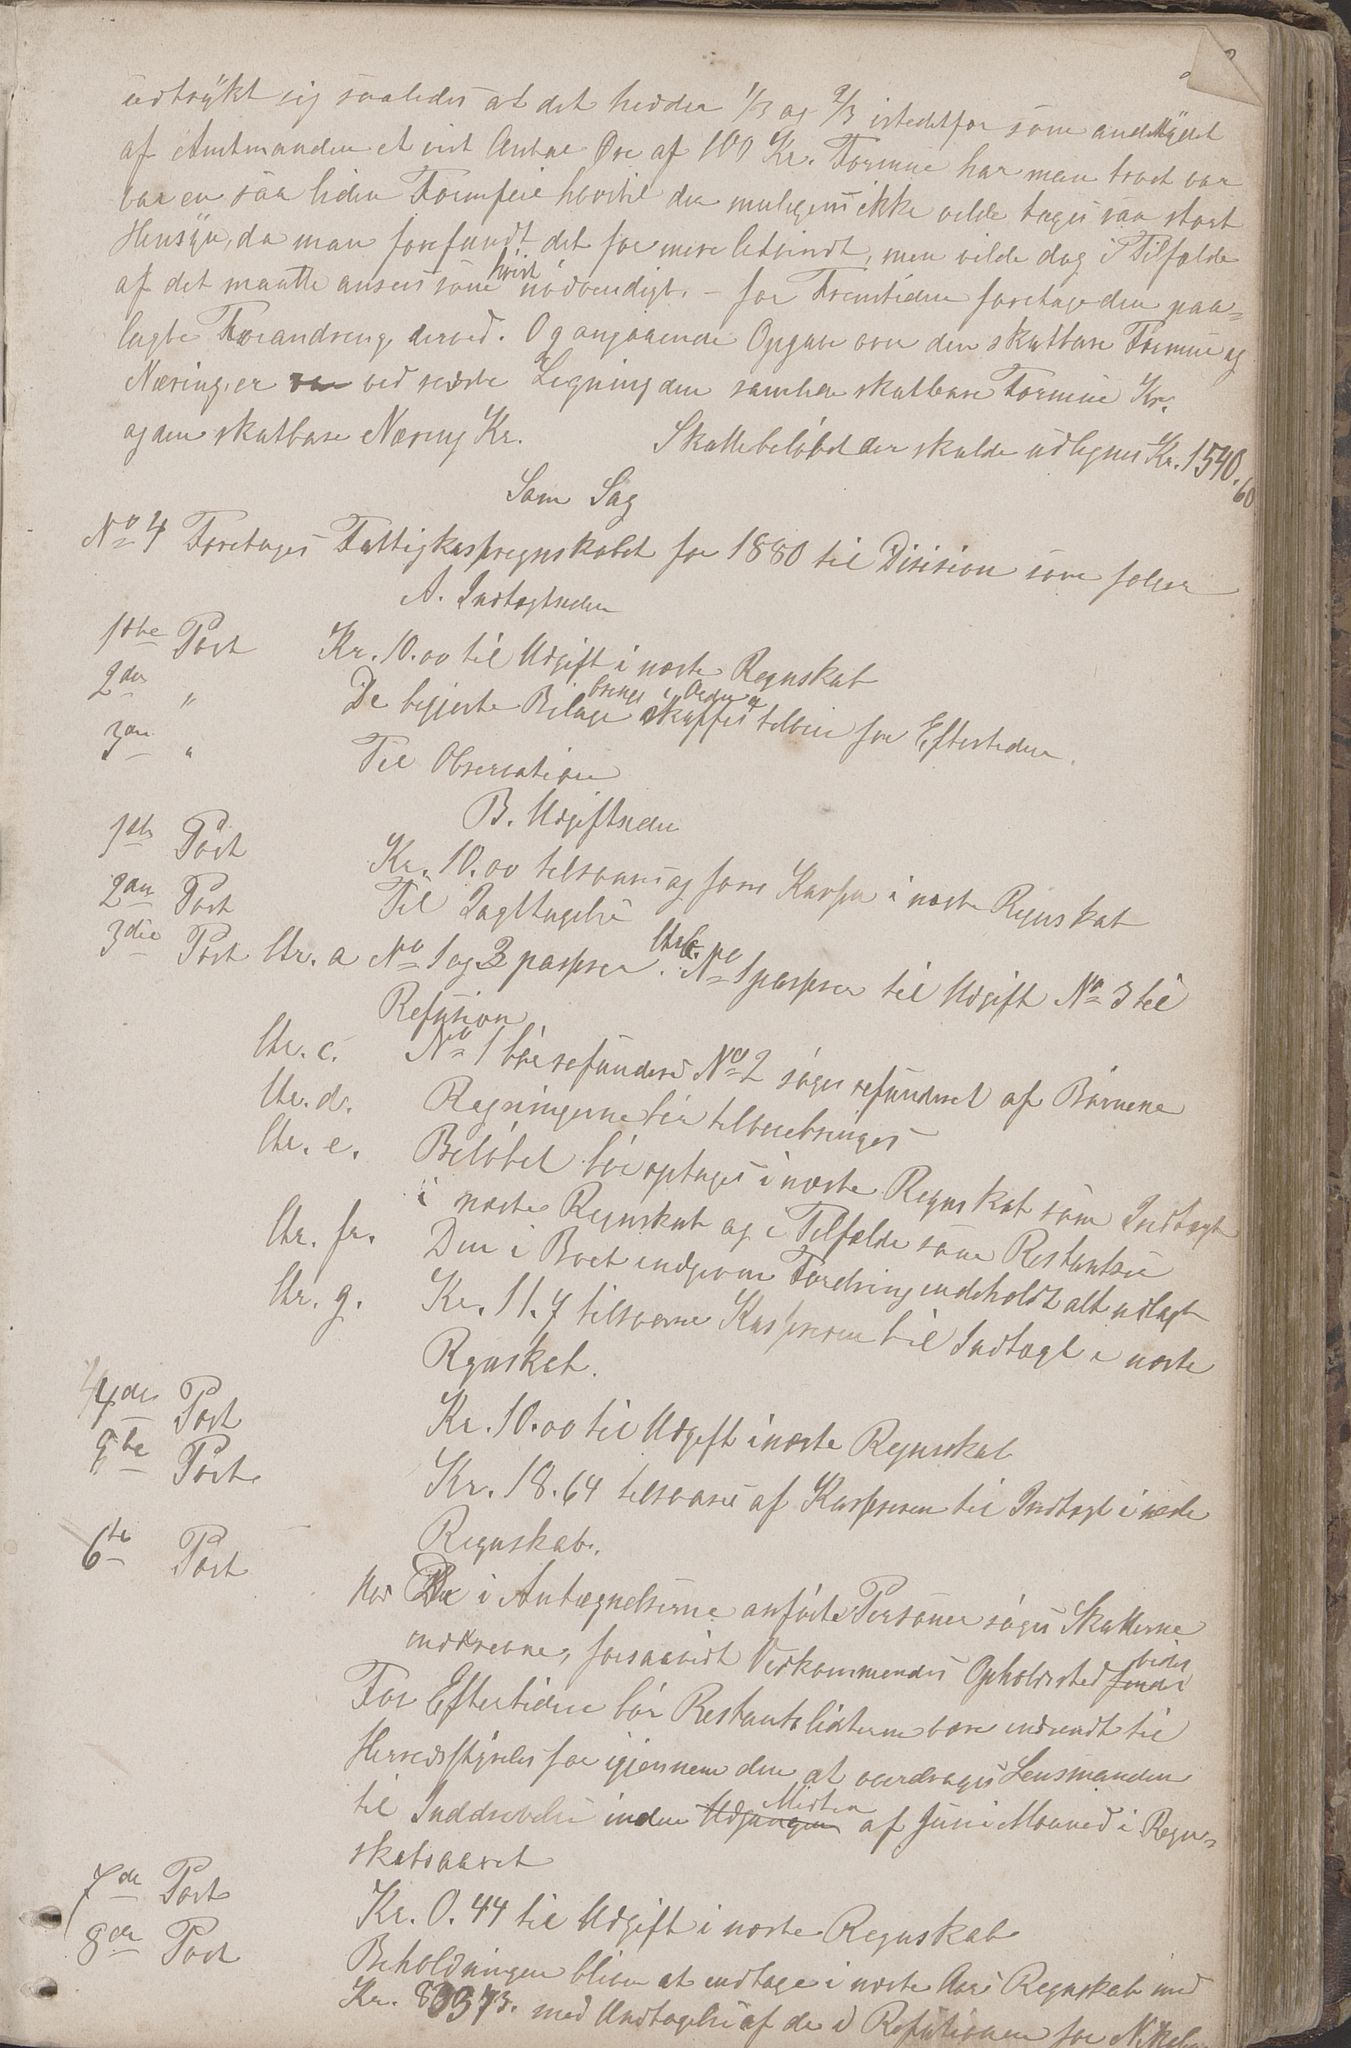 udtrykt sig saaledes at det hedder 1/3 og 2/3 istedetfor som andetydet
af Amtmanden et vist Antal Øre af 100 Kr. Formue har man troet var
var en saa liden Formfeil hvortil der muligens ikke vilde tages saa stort
Hensyn, da man forefandt det for mere letvindt, men vilde dog i Tilfælde
af det maatte ansees som høist nødvendigt. – for Fremtiden foretage den paa=
lagte Forandring derved. Og angaaende Opgave over den skatbare Formue og
Næring, er ved sidste Ligning den samlede skatbare Formue Kr.
og den skatbare Næring Kr. Skattebeløbet der skulde udlignes Kr. 1540.60
Sam Sag
No 4 Foretages Fattigkasseregnskabet for 1880 til Disision som følger
A. Indtægtsiden
1ste Post Kr. 10.00 til Udgift i næste Regnskab
2den " De begjærte Bilage bringes i Orden og skaffes tilveie for Eftertiden.
3die " Til Observation
B. Udgiftsiden
1ste Post Kr. 10.00 tilsvares af forrige Kasserer i næste Regnskab
2den Post Til Iagttagelse
3die Post Ltr. a No 1 og 2 passerer. Ltr. b. No 1 passerer til Udgift No 3 til
Refusion
Ltr. c. No 1 bør refunderes No 2 søges refunderet af Børnene
Ltr. d. Regningerne bør tilveiebringes
Ltr. e. Beløbet bør optages i næste Regnskab som Indtægt
i næste Regnskab og i Tilfælde som Restantse
Ltr. f. Den i Boet indgivne Fordring indeholdt alt udlagt
Ltr. g. Kr. 11.7 tilsvares Kassereren til Indtægt i næste
Regnskab.
4de Post Kr. 10.00 til Udgift i næste Regnskab
5te Post Kr. 18.64 tilsvares af Kassereren til Indtægt i næste
Regnskab.
6te Post Hos De i Antegnelserne anførte Personer søges Skatterne
inddrevne, forsaavidt Vedkommendes Opholdssted vides
For Eftertiden bør Restantslisterne være indsendt til
Herredsstyrelsen for igjennem den at overdrages Lensmanden
til Inddrivelse inden Udgangen Midten af Juni Maaned i Regn=
skabsaaret
7de Post Kr. 0.44 til Udgift i næste Regnskab
8de Post Beholdningen bliver at indtage i næste Aars Regnskab med
Kr. med Undtagelse af de i Refusionen for